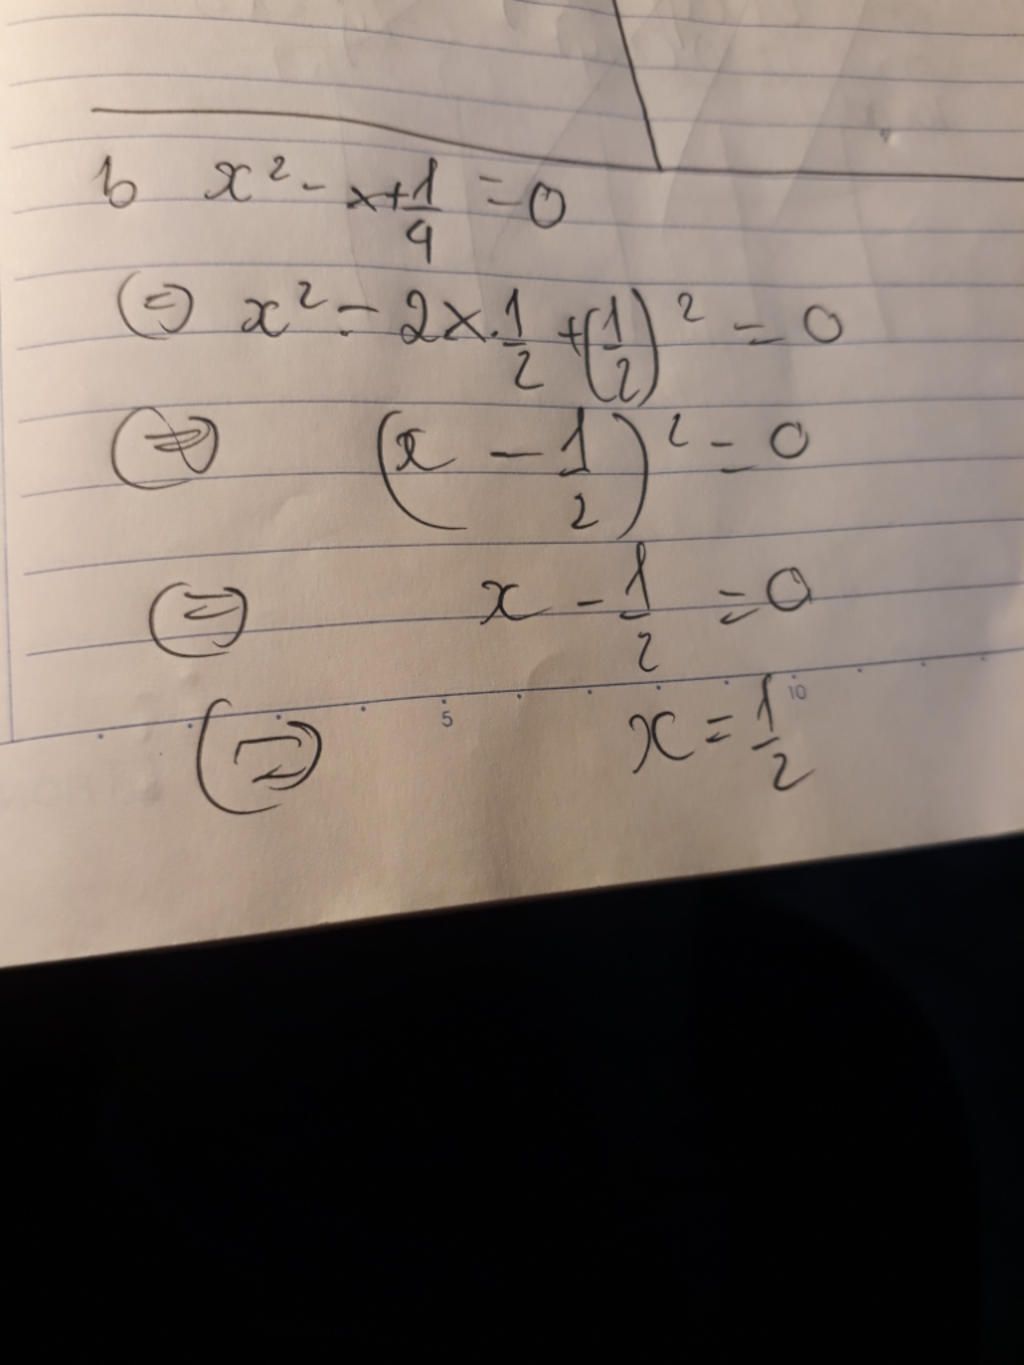 b x² - x + 1/4 = 0
(=) x² - 2x . 1/2 + (1/2)² = 0
(=) (x - 1/2)² = 0
(=) x - 1/2 = 0
5 10
(=) x = 1/2